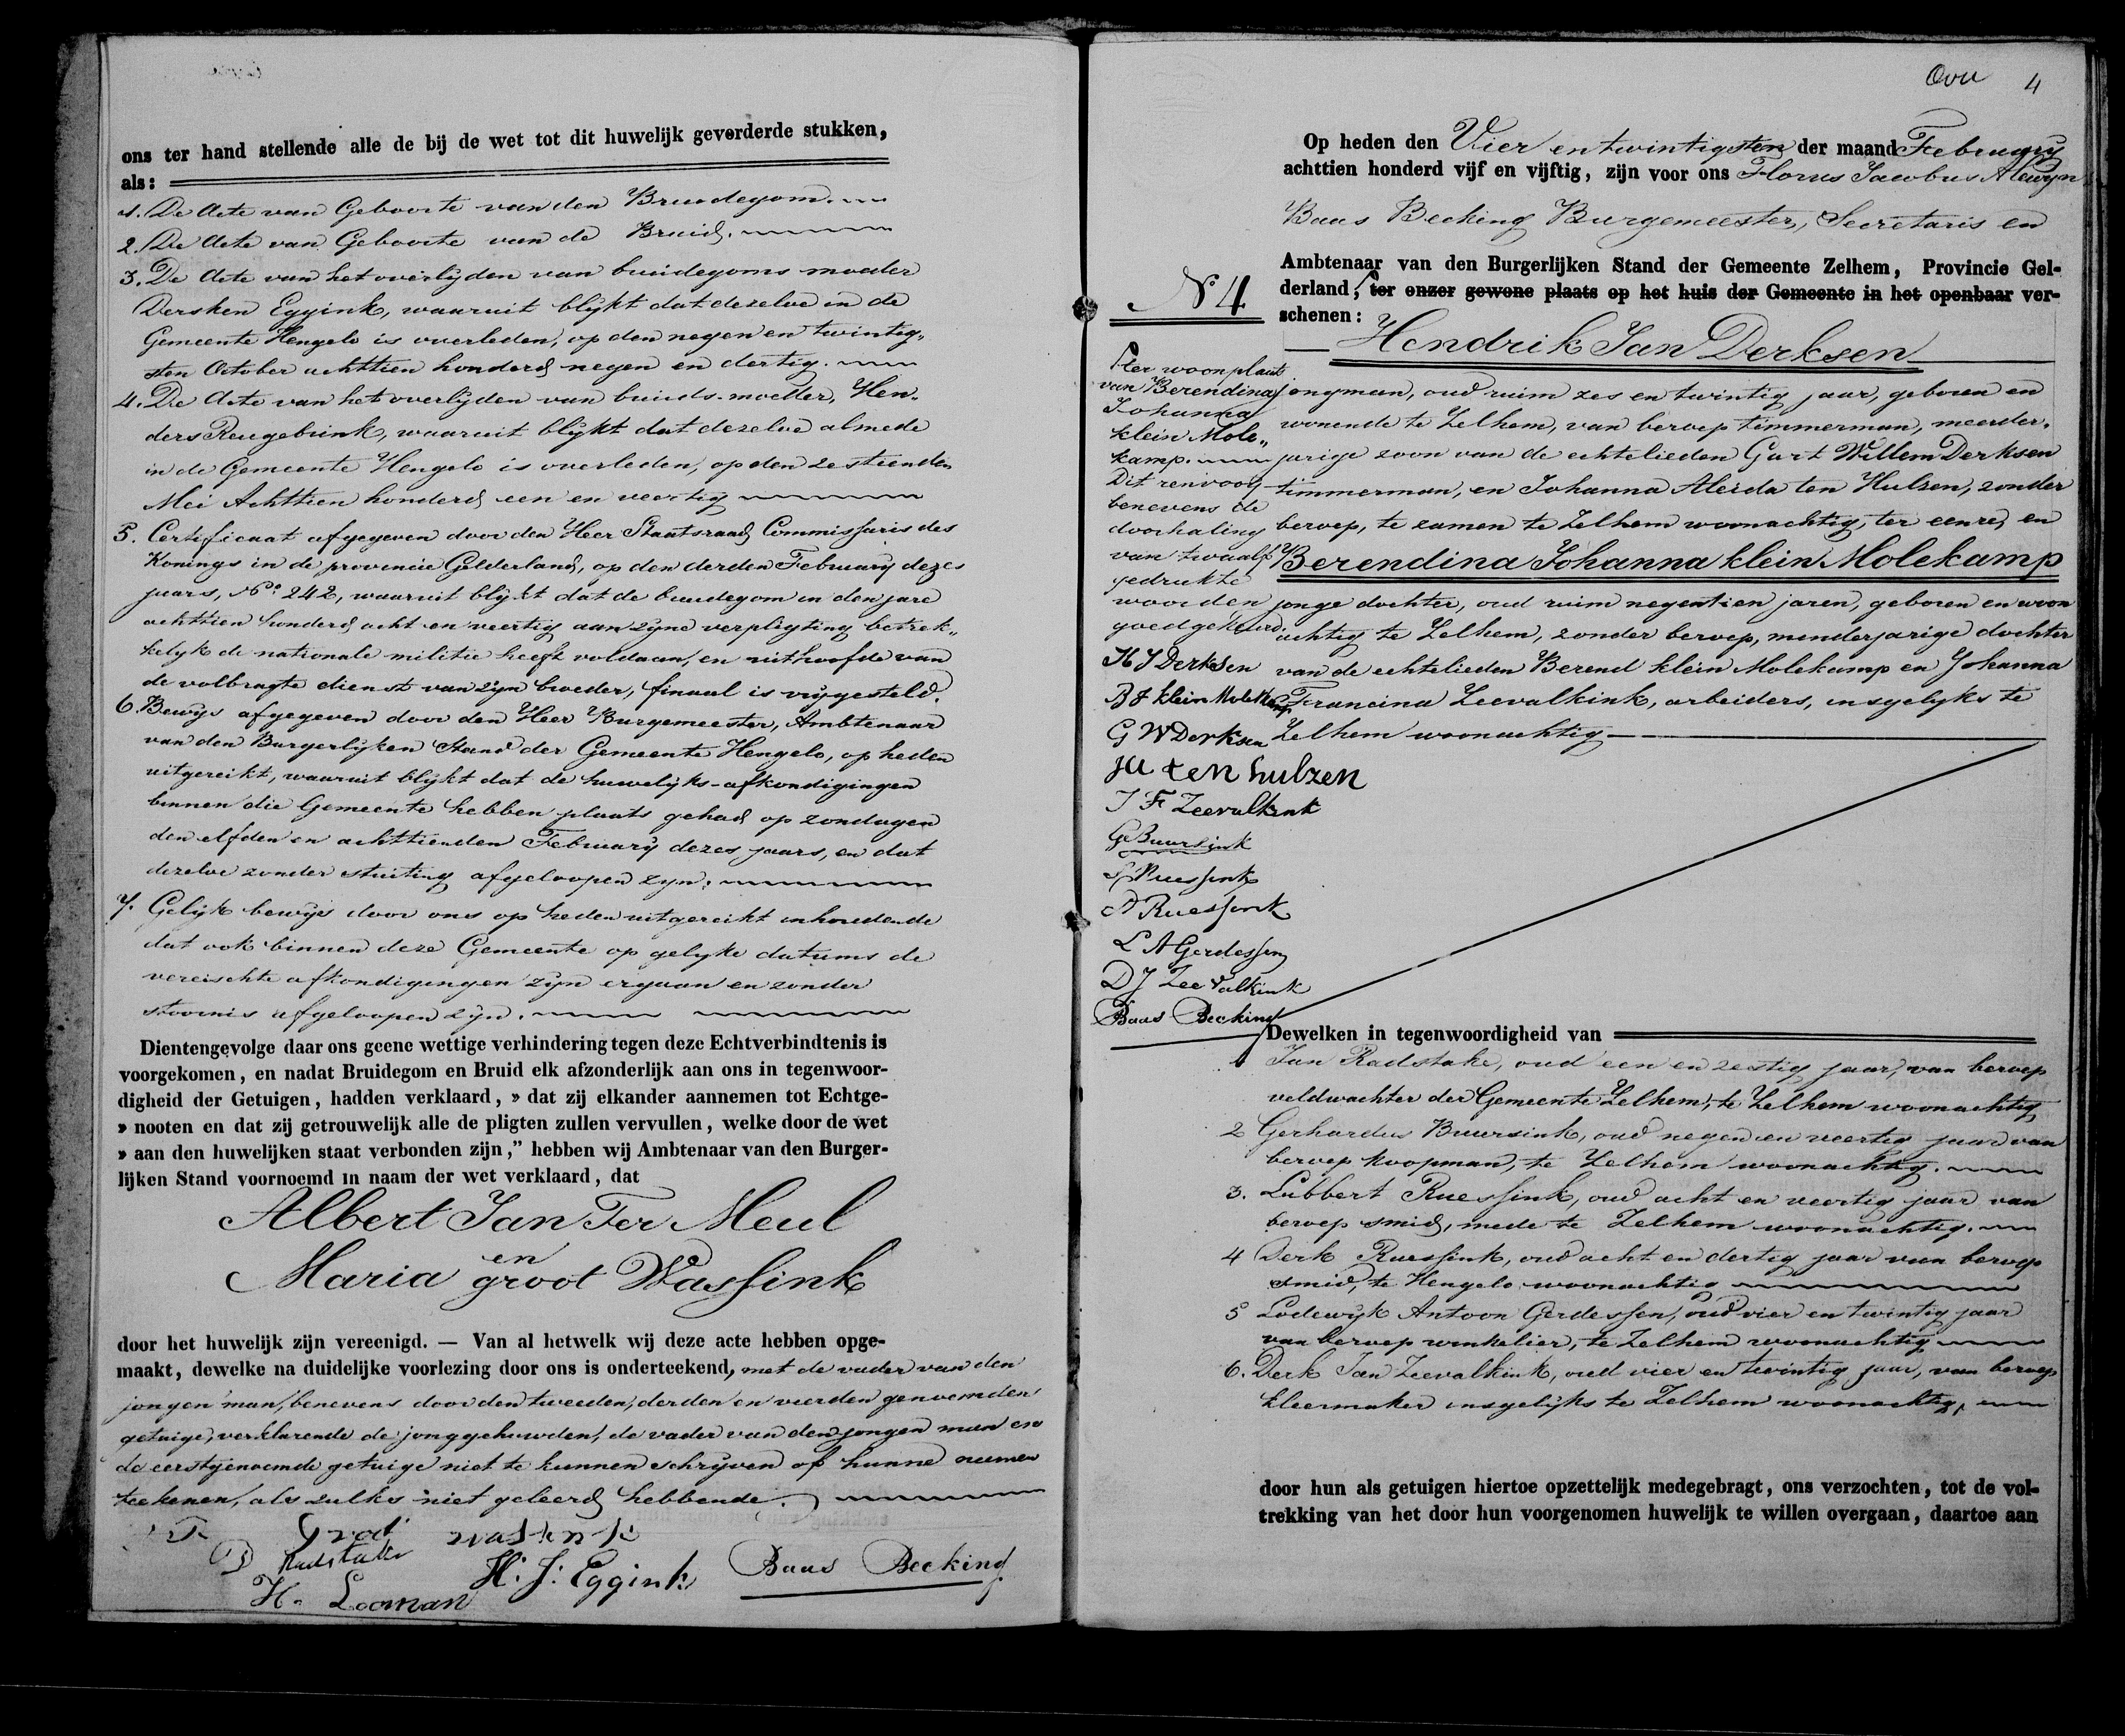 ons ter hand stellende alle de bij de wet tot dit huwelijk gevorderde stukken,
als:
1. De Acte van Geboorte van den Bruidegom.
2. De Acte van Geboorte van de Bruid.
3. De Acte van het overlijden van bruidegoms moeder
Dersken Eggink, waaruit blijkt dat dezelve in de
Gemeente Hengelo is overleden, op den negen en twintig-
sten October achttien honderd negen en dertig.
4. De Acte van het overlijden van bruids-moeder, Hen-
ders Reugebrink, waaruit blijkt dat dezelve almede
in de Gemeente Hengelo is overleden, op den zestienden
Mei Achttien honderd een en veertig
5. Certificaat afgegeven door den Heer Staatsraad Commissaris des
Konings in de provincie Gelderland, op den derden February dezes
jaars, No. 242, waaruit blijkt dat de bruidegom in den jare
achttien honderd acht en veertig aan zijne verpligting betrek-
kelijk de nationale militie heeft voldaan, en uit hoofde van
de volbragte dienst van zijn broeder, finaal is vrijgesteld.
6. Bewijs afgegeven door den Heer Burgemeester, Ambtenaar
van den Burgerlijken Stand der Gemeente Hengelo, op heden
uitgereikt, waaruit blijkt dat de huwelijks-afkondigingen
binnen die Gemeente hebben plaats gehad op zondagen
den elfden en achttienden February dezes jaars, en dat
dezelve zonder stuiting afgeloopen zijn;
7. Gelijk bewijs door ons op heden uitgereikt inhoudende
dat ook binnen deze Gemeente op gelijke datums de
vereischte afkondigingen zijn ergaan en zonder
stoornis afgeloopen zijn.
Dientengevolge daar ons geene wettige verhindering tegen deze Echtverbindtenis is
voorgekomen, en nadat Bruidegom en Bruid elk afzonderlijk aan ons in tegenwoor-
digheid der Getuigen, hadden verklaard, » dat zij elkander aannemen tot Echtge-
» nooten en dat zij getrouwelijk alle de pligten zullen vervullen, welke door de wet
» aan den huwelijken staat verbonden zijn," hebben wij Ambtenaar van den Burger-
lijken Stand voornoemd in naam der wet verklaard, dat
Albert Jan Ter Meul
en
Maria groot Wassink
door het huwelijk zijn vereenigd. — Van al hetwelk wij deze acte hebben opge-
maakt, dewelke na duidelijke voorlezing door ons is onderteekend, met de vader van den
jongen man, benevens door den tweeden, derden en vierden genoemden
getuige, verklarende de jonggehuwden, de vader van den jongen man en
de eerstgenoemde getuige niet te kunnen schrijven of hunne namen
teekenen, als zulks niet geleerd hebbende.
Groot wassink
Radstake
H. J. Eggink
Baas Becking
H. Looman
Over 4
Op heden den Vier en twintigsten der maand February
achttien honderd vijf en vijftig, zijn voor ons Florus Jacobus Alewijn
Baas Becking Burgemeester, Secretaris en
Ambtenaar van den Burgerlijken Stand der Gemeente Zelhem, Provincie Gel-
derland, ter onzer gewone plaats op het huis der Gemeente in het openbaar ver-
schenen:
No 4
Hendrik Jan Derksen
jongman, oud ruim zes en twintig jaar, geboren en
wonende te Zelhem, van beroep timmerman, meerder-
jarige zoon van de echtelieden Gart Willem Derksen
timmerman, en Johanna Aleida ten Hulzen, zonder
beroep, te zamen te Zelhem woonachtig, ter eenre, en
Berendina Johanna klein Molekamp
jonge dochter, oud ruim negentien jaren, geboren en woon
achtig te Zelhem, zonder beroep, minderjarige dochter
van de echtelieden Berend klein Molekamp en Johanna
Francina Zeevalkink, arbeiders, insgelijks te
Zelhem woonachtig
ter woonplaats
van Berendina
Johanna
klein Mole-
kamp.
Dit renvooij
benevens de
doorhaling
van twaalf
gedrukte
woorden
goedgekeurd.
H J Derksen
B J klein Molekamp
G W Derksen
JA ten hulzen
J F Zeevalkink
G Buursink
L Ruessink
D Ruessink
L A Gerdessen
D J Zeevalkink
Baas Becking
Dewelken in tegenwoordigheid van
1 Jan Radstake, oud een en zestig jaar, van beroep
veldwachter der Gemeente Zelhem, te Zelhem woonachtig
2 Gerhardus Buursink, oud negen en veertig jaar van
beroep koopman, te Zelhem woonachtig.
3. Lubbert Ruessink, oud acht en veertig jaar van
beroep smid, mede te Zelhem woonachtig.
4 Derk Ruessink, oud acht en dertig jaar van beroep
smid, te Hengelo woonachtig
5 Lodewijk Antoon Gerdessen, oud vier en twintig jaar
van beroep winkelier, te Zelhem woonachtig
6. Derk Jan Zeevalkink, oud vier en twintig jaar, van beroep
kleermaker insgelijks te Zelhem woonachtig,
door hun als getuigen hiertoe opzettelijk medegebragt, ons verzochten, tot de vol-
trekking van het door hun voorgenomen huwelijk te willen overgaan, daartoe aan